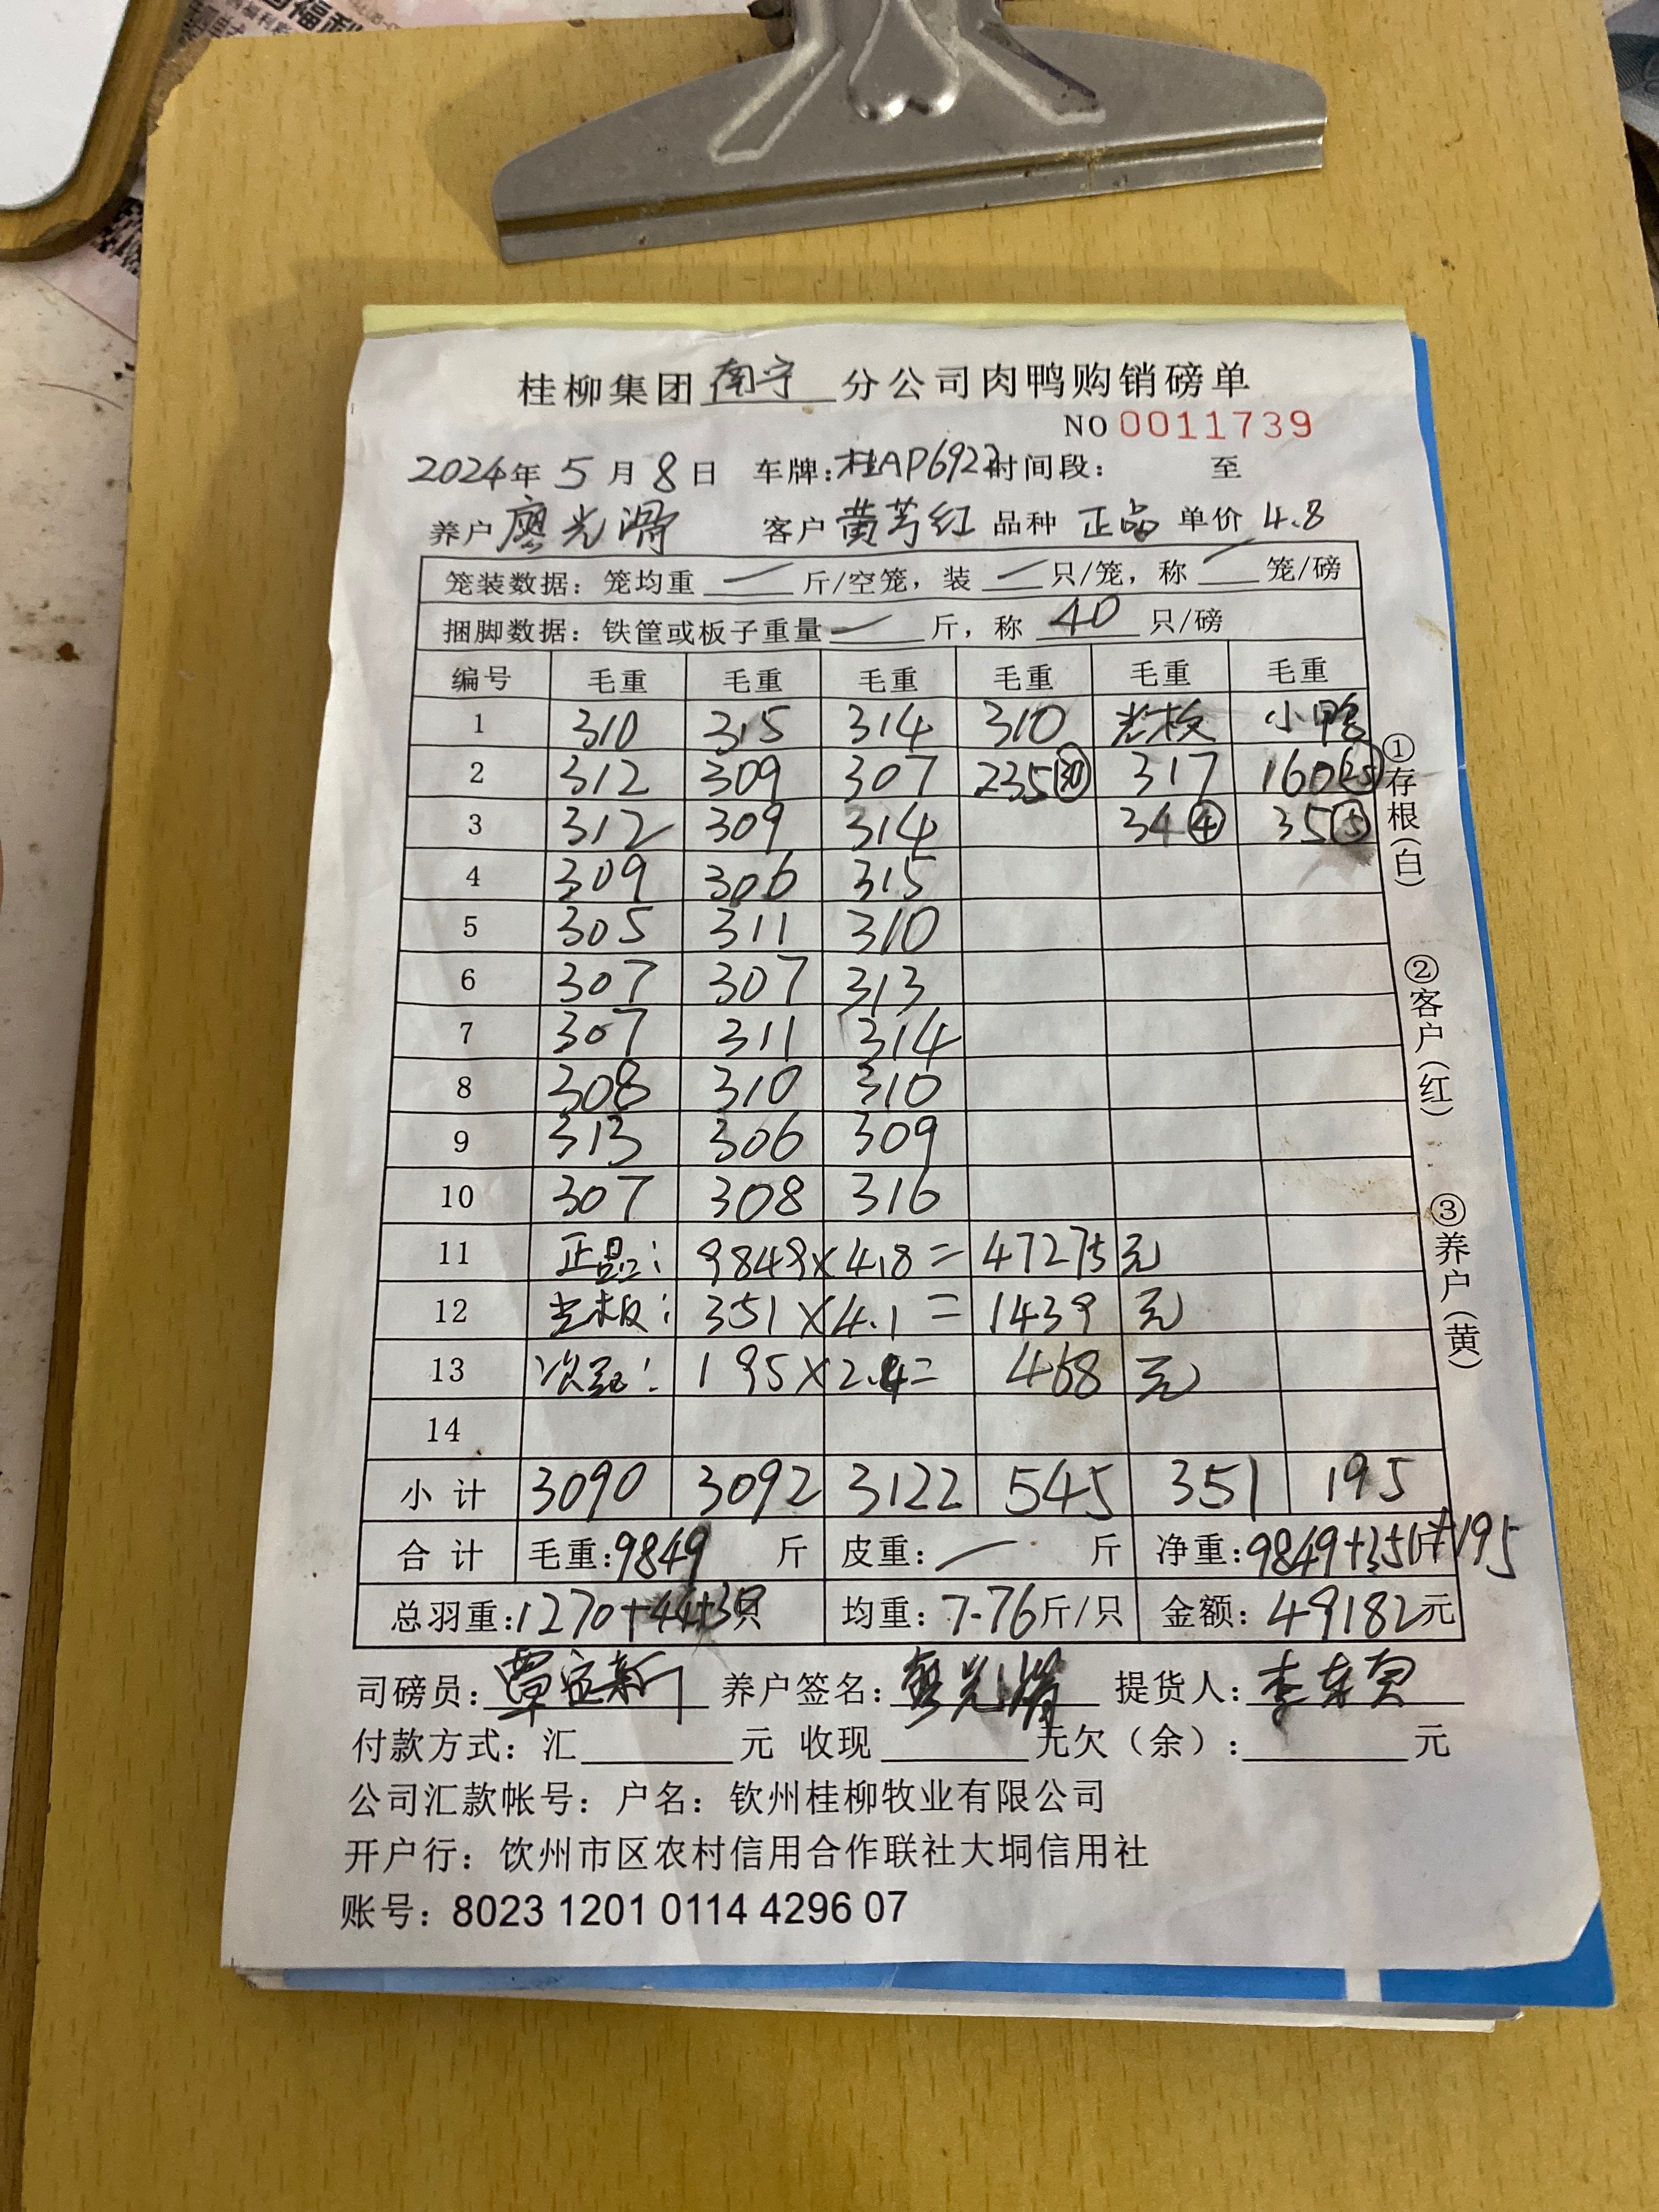 桂柳集团南宁分公司肉鸭购销磅单
NO 0011739
2024年5月8日 车牌:桂AP6922 时间段: 至
养户 廖光滑 客户 黄芳红 品种 正品 单价 4.8
笼装数据: 笼均重 — 斤/空笼, 装 — 只/笼, 称 — 笼/磅
捆脚数据: 铁筐或板子重量 — 斤, 称 40 只/磅
编号 毛重 毛重 毛重 毛重 毛重 毛重
1 310 315 314 310 光板 小鸭
2 312 309 307 235㉚ 317 160㉕
3 312 309 314 34④ 35⑤
4 309 306 315
5 305 311 310
6 307 307 313
7 307 311 314
8 308 310 310
9 313 306 309
10 307 308 316
11 正品: 9849×4.8= 47275元
12 光板: 351×4.1= 1439 元
13 195×2.4= 468 元
14
小计 3090 3092 3122 545 351 195
合计 毛重:9849 斤 皮重: — 斤 净重:9849+351+195斤
总羽重:1270+44+30只 均重:7.76斤/只 金额:49182元
司磅员: 养户签名: 廖光滑 提货人:
付款方式: 汇 元 收现 元欠(余): 元
公司汇款帐号: 户名: 钦州桂柳牧业有限公司
开户行: 饮州市区农村信用合作联社大垌信用社
账号: 8023 1201 0114 4296 07
①存根(白) ②客户(红) ③养户(黄)